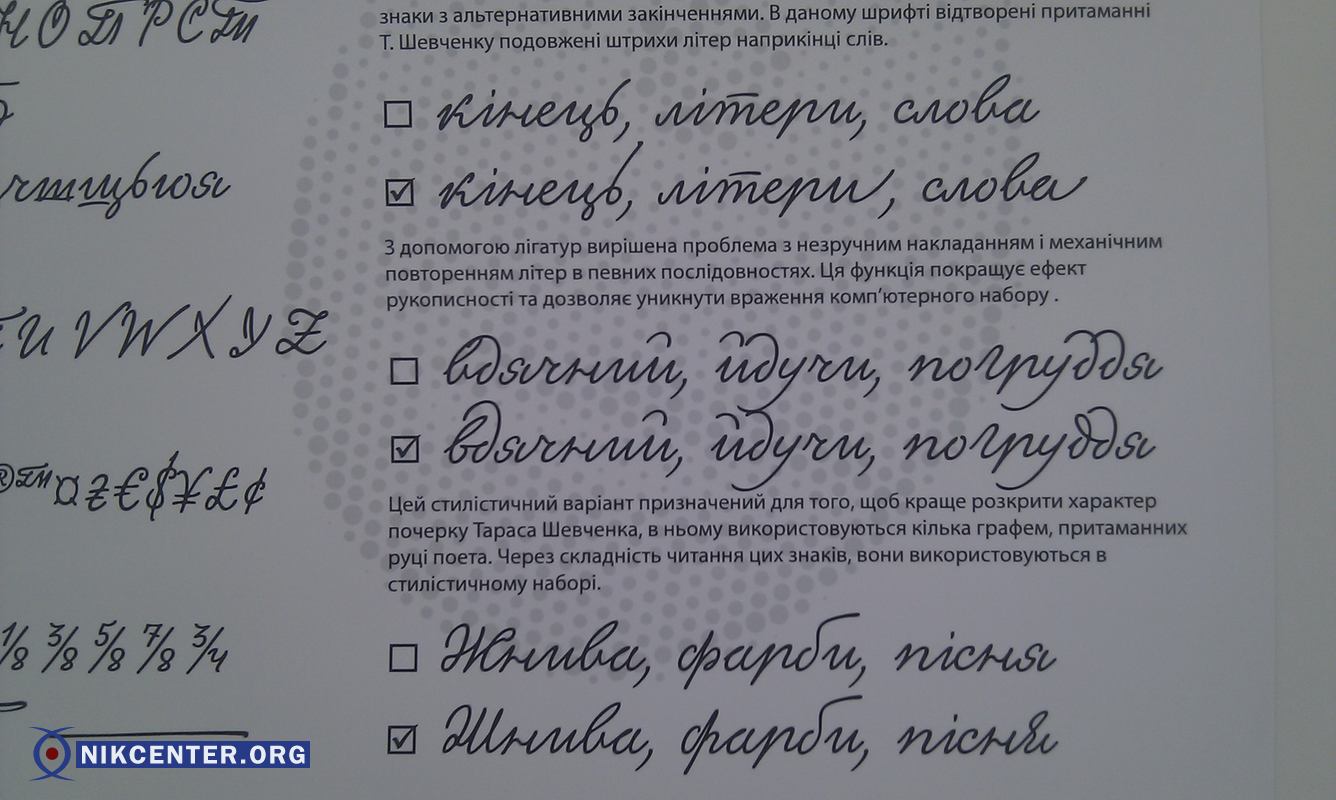 Н О П Р С Т
чтшщьюя
U V W X Y Z
®™¤₴€$¥£¢
1/8 3/8 5/8 7/8 3/4
знаки з альтернативними закінченнями. В даному шрифті відтворені притаманні
Т. Шевченку подовжені штрихи літер наприкінці слів.
☐ кінець, літери, слова
☑ кінець, літери, слова
З допомогою лігатур вирішена проблема з незручним накладанням і механічним
повторенням літер в певних послідовностях. Ця функція покращує ефект
рукописності та дозволяє уникнути враження комп'ютерного набору .
☐ вдячний, йдучи, погруддя
☑ вдячний, йдучи, погруддя
Цей стилістичний варіант призначений для того, щоб краще розкрити характер
почерку Тараса Шевченка, в ньому використовуються кілька графем, притаманних
руці поета. Через складність читання цих знаків, вони використовуються в
стилістичному наборі.
☐ Жнива, фарби, пісня
☑ Жнива, фарби, пісня
NIKCENTER.ORG